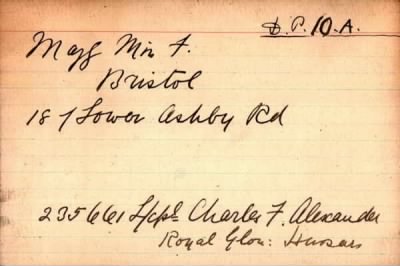 D.P. 10.A.
Mayg Miss F.
Bristol
187 Lower Ashby Rd
235661 L/Cpl Charles F. Alexander
Royal Glou: Hussars